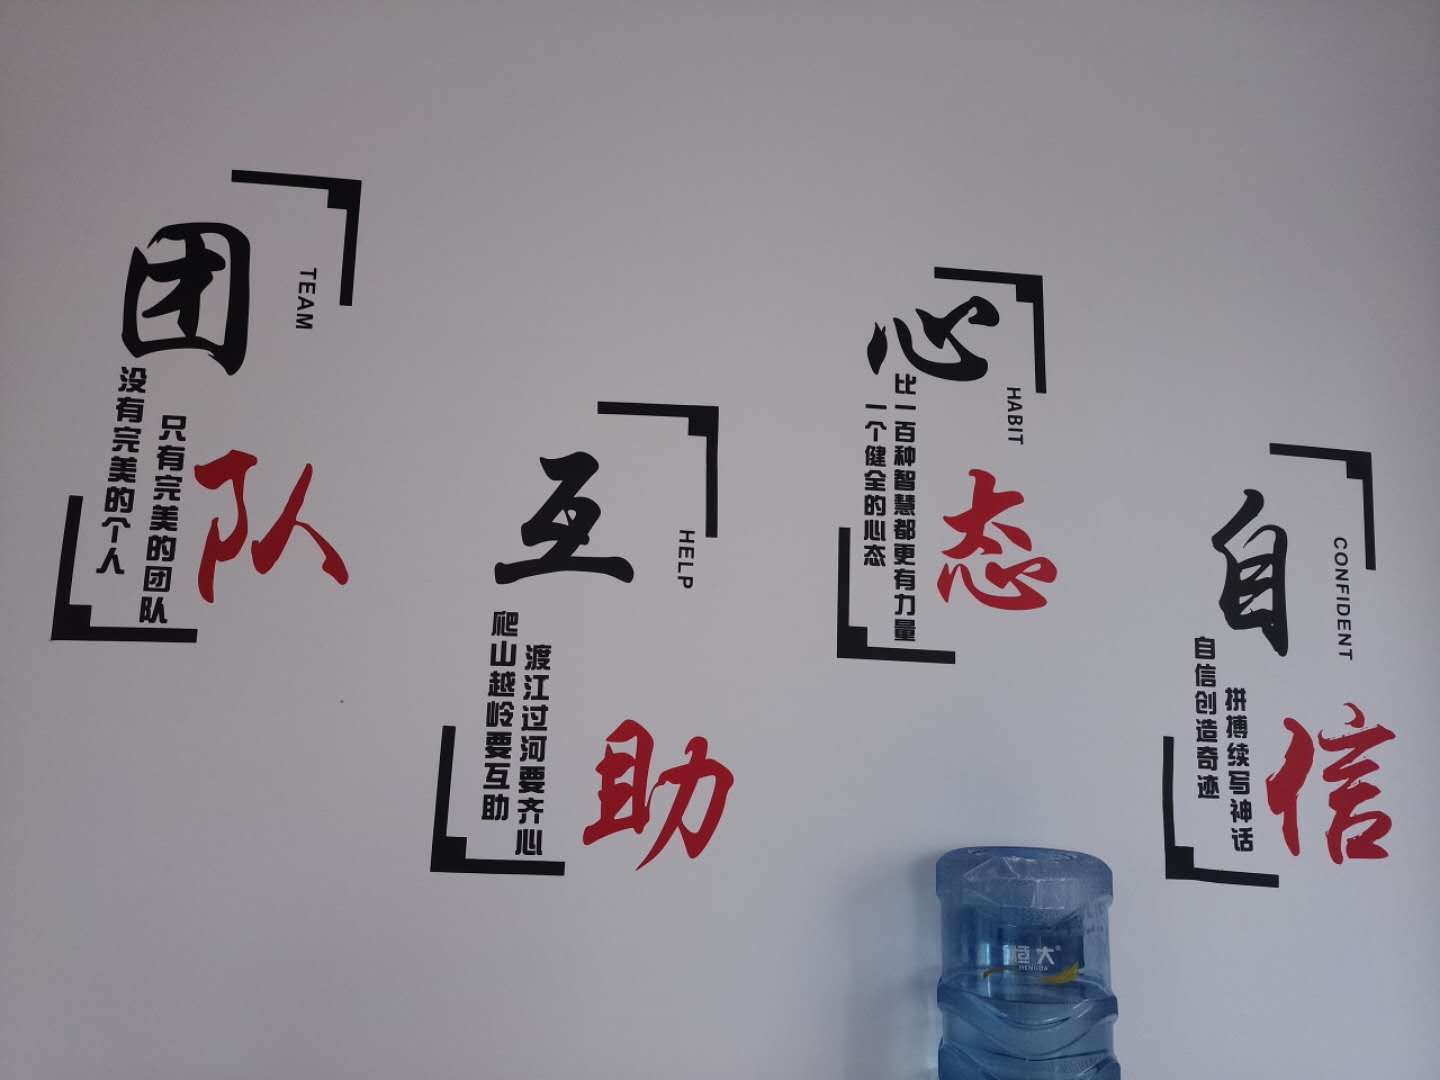 团队
TEAM
没有完美的个人
只有完美的团队
互助
HELP
爬山越岭要互助
渡江过河要齐心
心态
HABIT
一个健全的心态
比一百种智慧都更有力量
自信
CONFIDENT
自信创造奇迹
拼搏续写神话
恒大
HENGDA